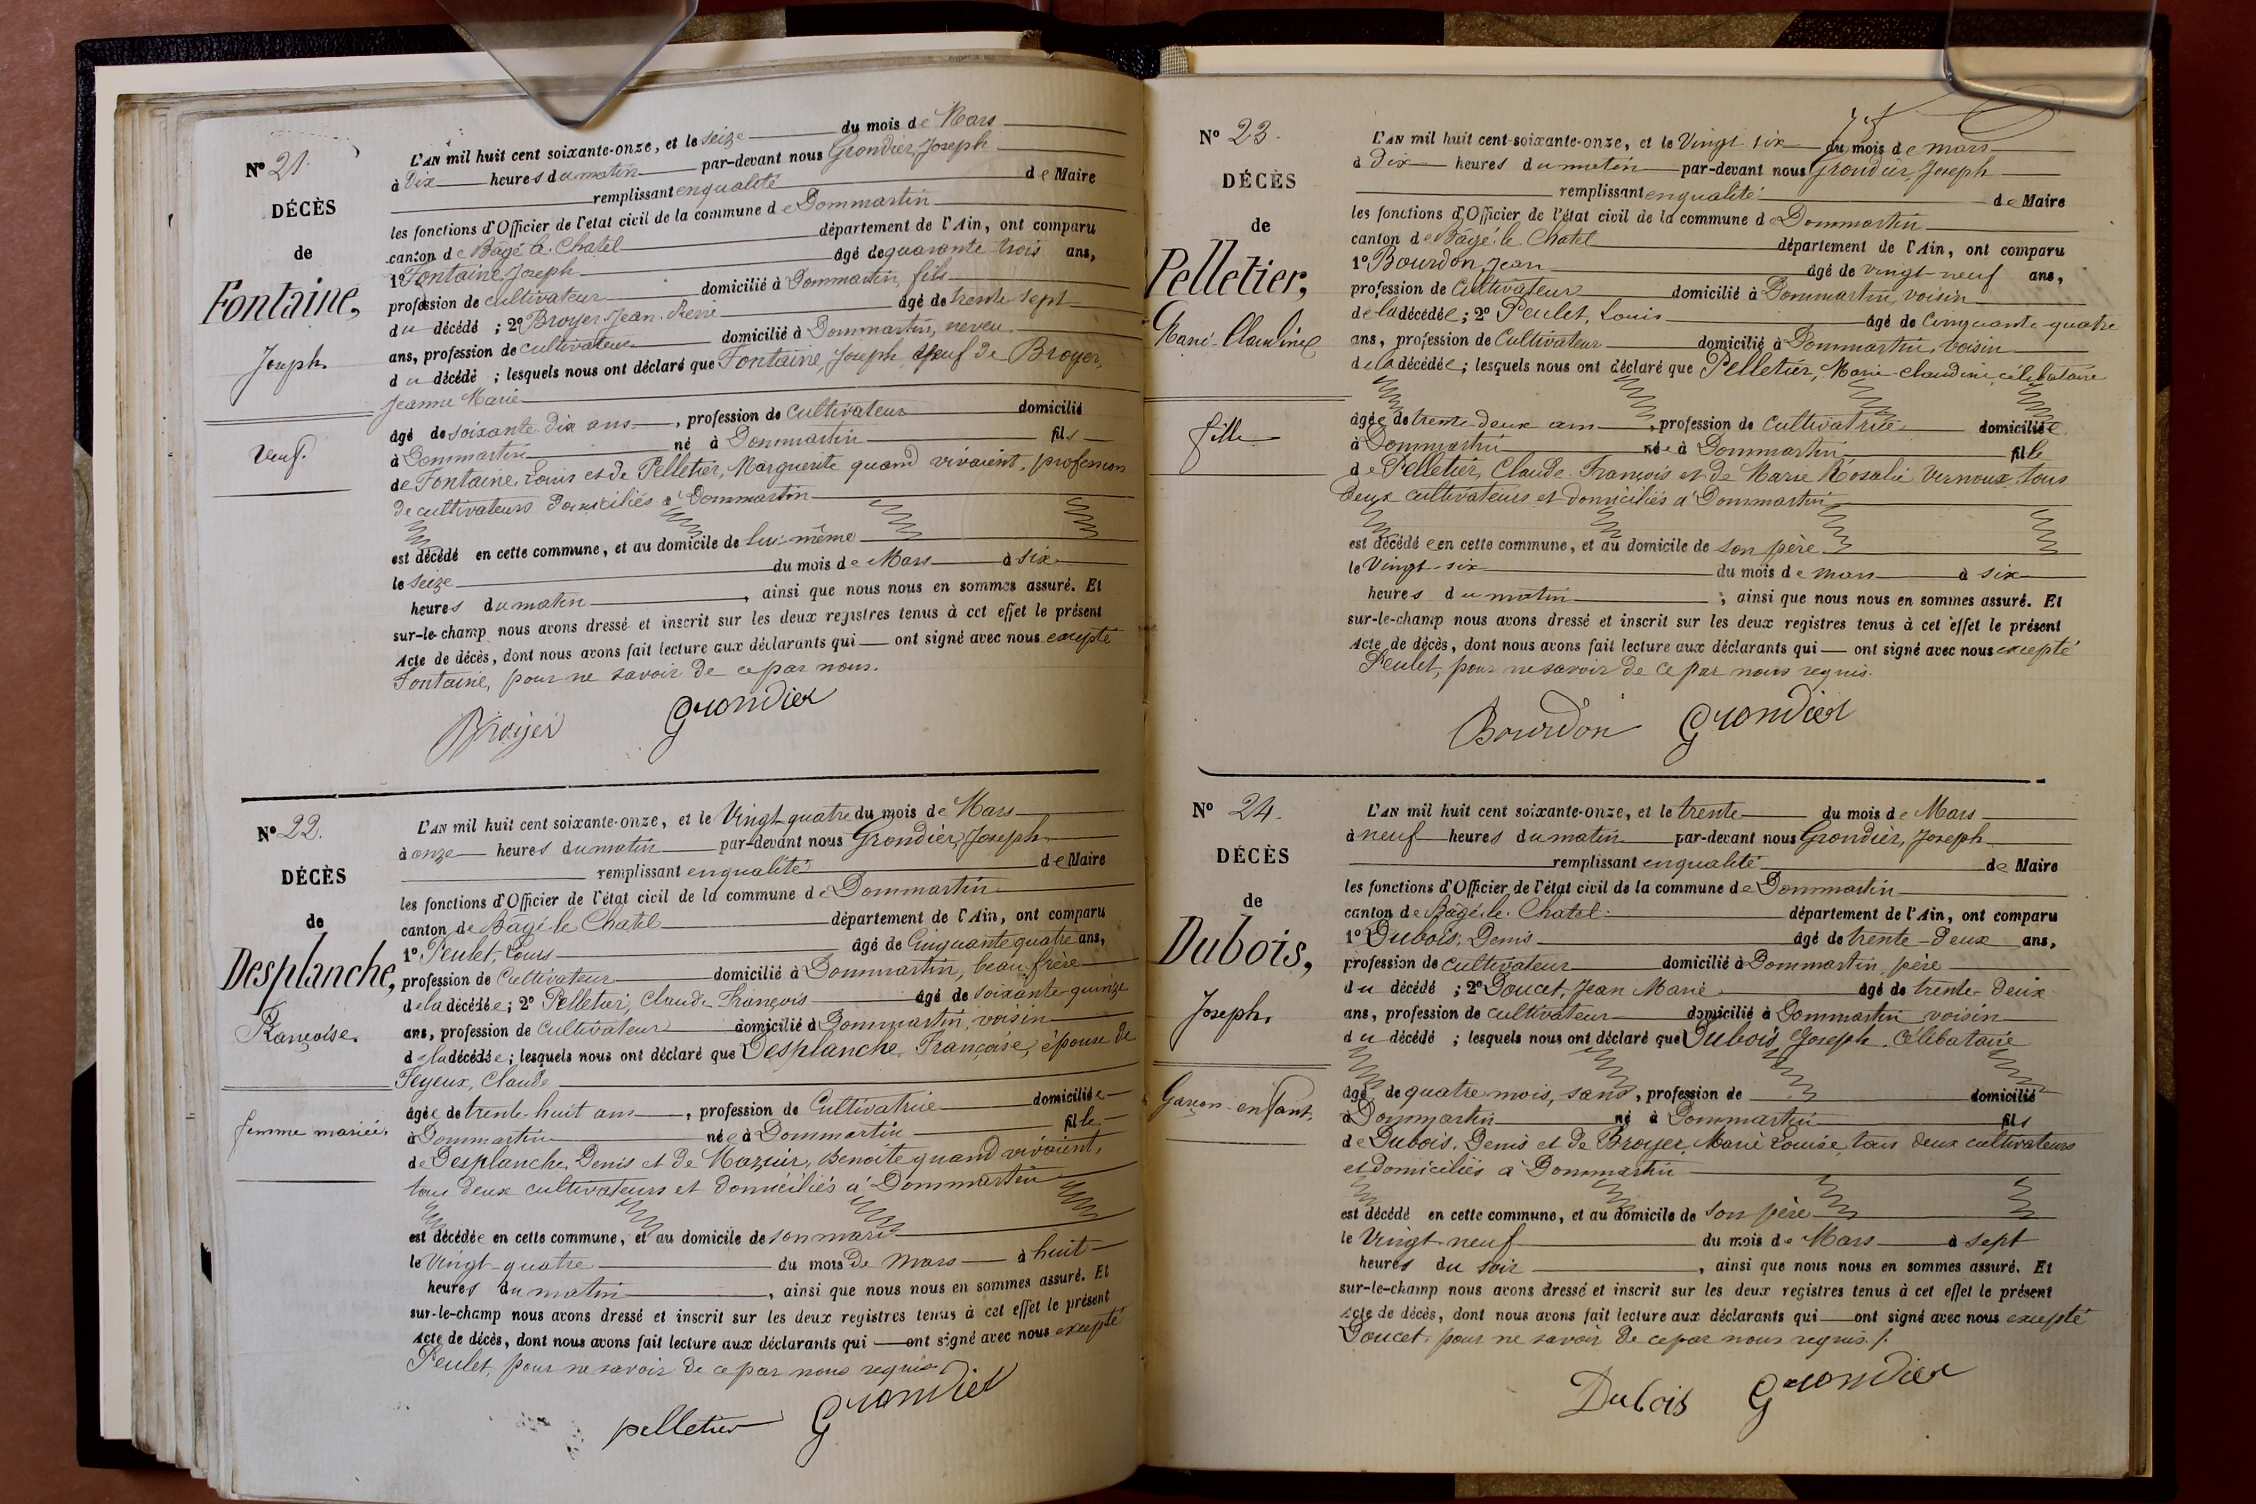 N° 21.
DÉCÈS
de
Fontaine,
Joseph.
Veuf.
L'AN mil huit cent soixante-onze, et le seize du mois de Mars
à dix heures du matin par-devant nous Grondier, Joseph
remplissant en qualité de Maire
les fonctions d'Officier de l'état civil de la commune de Dommartin
canton de Bâgé-le-Chatel département de l'Ain, ont comparu
1° Fontaine, Joseph âgé de quarante trois ans,
profession de cultivateur domicilié à Dommartin, fils
du décédé ; 2° Broyer Jean-Pierre âgé de trente sept
ans, profession de cultivateur domicilié à Dommartin, neveu
du décédé ; lesquels nous ont déclaré que Fontaine, Joseph, veuf de Broyer,
Jeanne Marie
âgé de soixante-dix ans, profession de cultivateur domicilié
à Dommartin né à Dommartin fils
de Fontaine, Louis et de Pelletier, Marguerite quand vivaient, profession
de cultivateurs domiciliés à Dommartin
est décédé en cette commune, et au domicile de lui-même
le seize du mois de Mars à six
heures du matin, ainsi que nous nous en sommes assuré. Et
sur-le-champ nous avons dressé et inscrit sur les deux registres tenus à cet effet le présent
Acte de décès, dont nous avons fait lecture aux déclarants qui ont signé avec nous excepté
Fontaine, pour ne savoir de ce par nous.
Broyer Grondier
N° 22.
DÉCÈS
de
Desplanche,
Françoise.
femme mariée.
L'AN mil huit cent soixante-onze, et le Vingt quatre du mois de Mars
à onze heures du matin par-devant nous Grondier, Joseph
remplissant en qualité de Maire
les fonctions d'Officier de l'état civil de la commune de Dommartin
canton de Bâgé-le-Chatel département de l'Ain, ont comparu
1° Peulet, Louis âgé de Cinquante quatre ans,
profession de Cultivateur domicilié à Dommartin, beau frère
de la décédée ; 2° Pelletier, Claude-François âgé de soixante-quinze
ans, profession de cultivateur domicilié à Dommartin, voisin
de la décédée ; lesquels nous ont déclaré que Desplanche, Françoise, épouse de
Feyeux, Claude
âgée de trente-huit ans, profession de Cultivatrice domiciliée
à Dommartin née à Dommartin fille
de Desplanche, Denis et de Mazuir, Benoite quand vivaient,
tous deux cultivateurs et domiciliés à Dommartin
est décédée en cette commune, et au domicile de son mari
le Vingt-quatre du mois de Mars à huit
heures du matin, ainsi que nous nous en sommes assuré. Et
sur-le-champ nous avons dressé et inscrit sur les deux registres tenus à cet effet le présent
Acte de décès, dont nous avons fait lecture aux déclarants qui ont signé avec nous excepté
Peulet, pour ne savoir de ce par nous requis
pelletier Grondier
N° 23.
DÉCÈS
de
Pelletier,
Marie-Claudine
fille
L'AN mil huit cent soixante-onze, et le Vingt six du mois de mars
à dix heures du matin par-devant nous Grondier, Joseph
remplissant en qualité de Maire
les fonctions d'Officier de l'état civil de la commune de Dommartin
canton de Bâgé-le-Chatel département de l'Ain, ont comparu
1° Bourdon, Jean âgé de vingt-neuf ans,
profession de Cultivateur domicilié à Dommartin, voisin
de la décédée ; 2° Peulet, Louis âgé de Cinquante-quatre
ans, profession de Cultivateur domicilié à Dommartin, voisin
de la décédée ; lesquels nous ont déclaré que Pelletier, Marie-Claudine, célibataire
âgée de trente-deux ans, profession de Cultivatrice domiciliée
à Dommartin née à Dommartin fille
de Pelletier, Claude-François et de Marie Rosalie Vernoux, tous
deux cultivateurs et domiciliés à Dommartin
est décédée en cette commune, et au domicile de son père
le Vingt-six du mois de mars à six
heures du matin ; ainsi que nous nous en sommes assuré. Et
sur-le-champ nous avons dressé et inscrit sur les deux registres tenus à cet effet le présent
Acte de décès, dont nous avons fait lecture aux déclarants qui ont signé avec nous excepté
Peulet, pour ne savoir de ce par nous requis.
Bourdon Grondier
N° 24.
DÉCÈS
de
Dubois,
Joseph.
Garçon-enfant.
L'AN mil huit cent soixante-onze, et le trente du mois de Mars
à neuf heures du matin par-devant nous Grondier, Joseph
remplissant en qualité de Maire
les fonctions d'Officier de l'état civil de la commune de Dommartin
canton de Bâgé-le-Chatel département de l'Ain, ont comparu
1° Dubois, Denis âgé de trente-deux ans,
profession de cultivateur domicilié à Dommartin, père
du décédé ; 2° Doucet, Jean Marie âgé de trente-deux
ans, profession de cultivateur domicilié à Dommartin voisin
du décédé ; lesquels nous ont déclaré que Dubois, Joseph, Célibataire
âgé de quatre mois, sans, profession de domicilié
à Dommartin né à Dommartin fils
de Dubois, Denis et de Broyer, Marie Louise, tous deux cultivateurs
et domiciliés à Dommartin
est décédé en cette commune, et au domicile de son père
le Vingt-neuf du mois de Mars à sept
heures du soir, ainsi que nous nous en sommes assuré. Et
sur-le-champ nous avons dressé et inscrit sur les deux registres tenus à cet effet le présent
Acte de décès, dont nous avons fait lecture aux déclarants qui ont signé avec nous excepté
Doucet, pour ne savoir de ce par nous requis.
Dubois Grondier